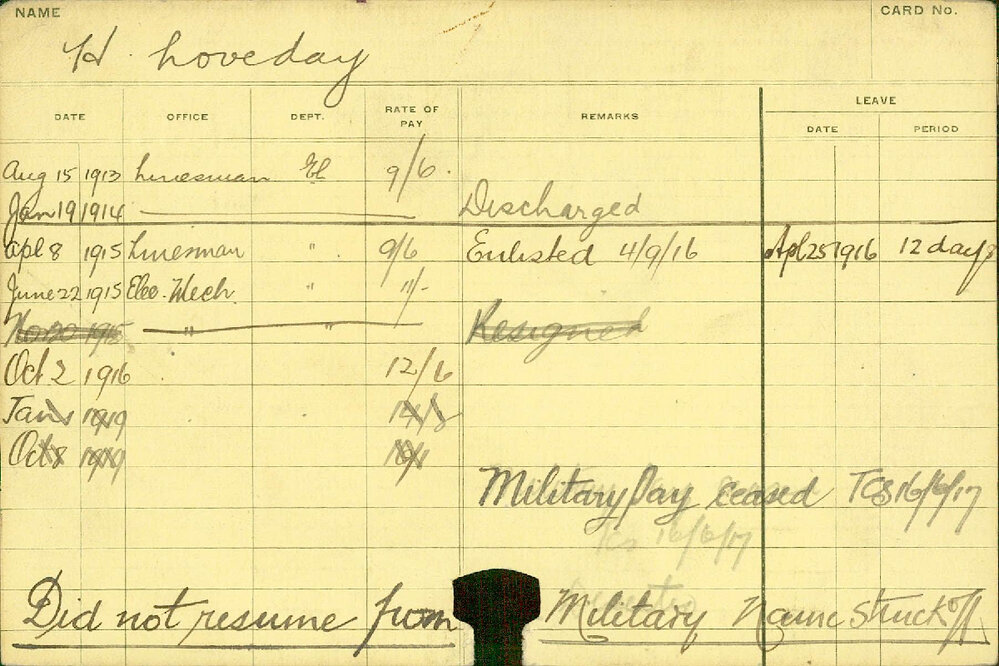 NAME CARD No.
H. Loveday
DATE OFFICE DEPT. RATE OF PAY REMARKS LEAVE
DATE PERIOD
Aug 15 1913 Linesman El 9/6.
Jan 19 1914 Discharged
Apl 8 1915 Linesman " 9/6 Enlisted 4/9/16 Apl 25 1916 12 days
June 22 1915 Elec. Mech. " 11/-
Nov 20 1915 " " Resigned
Oct 2 1916 12/6
Jan 1 1919
Oct 8 1919
Military Pay ceased TCS 16/6/17
16/6/17
Did not resume from Military Name struck off